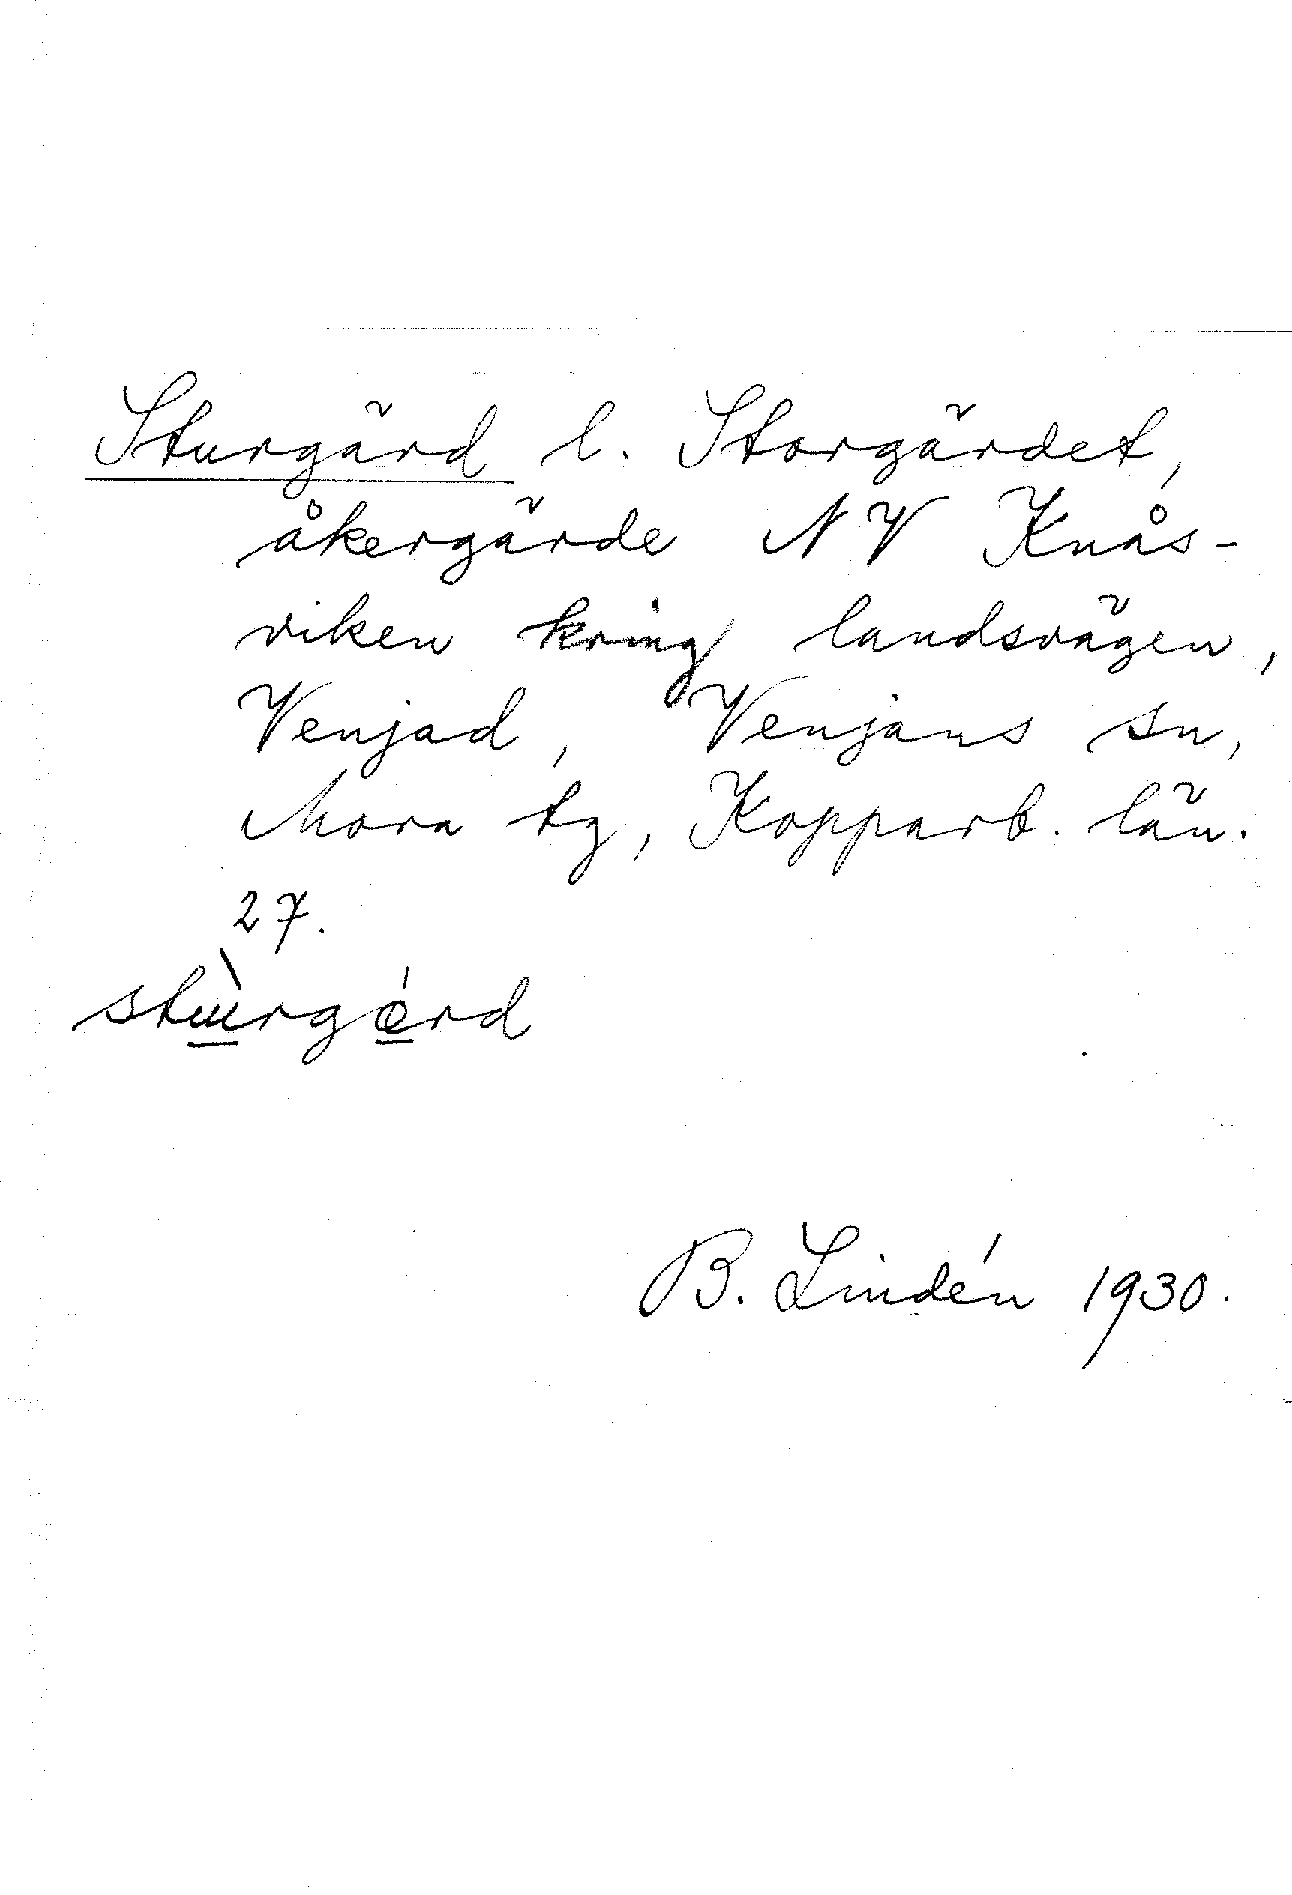 Sturgärd l. Storgärdet,
åkergärde NV Knås-
viken kring landsvägen,
Venjad, Venjans sn,
Mora tg, Kopparb. län.
27.
stùrgérd
B. Lindén 1930.